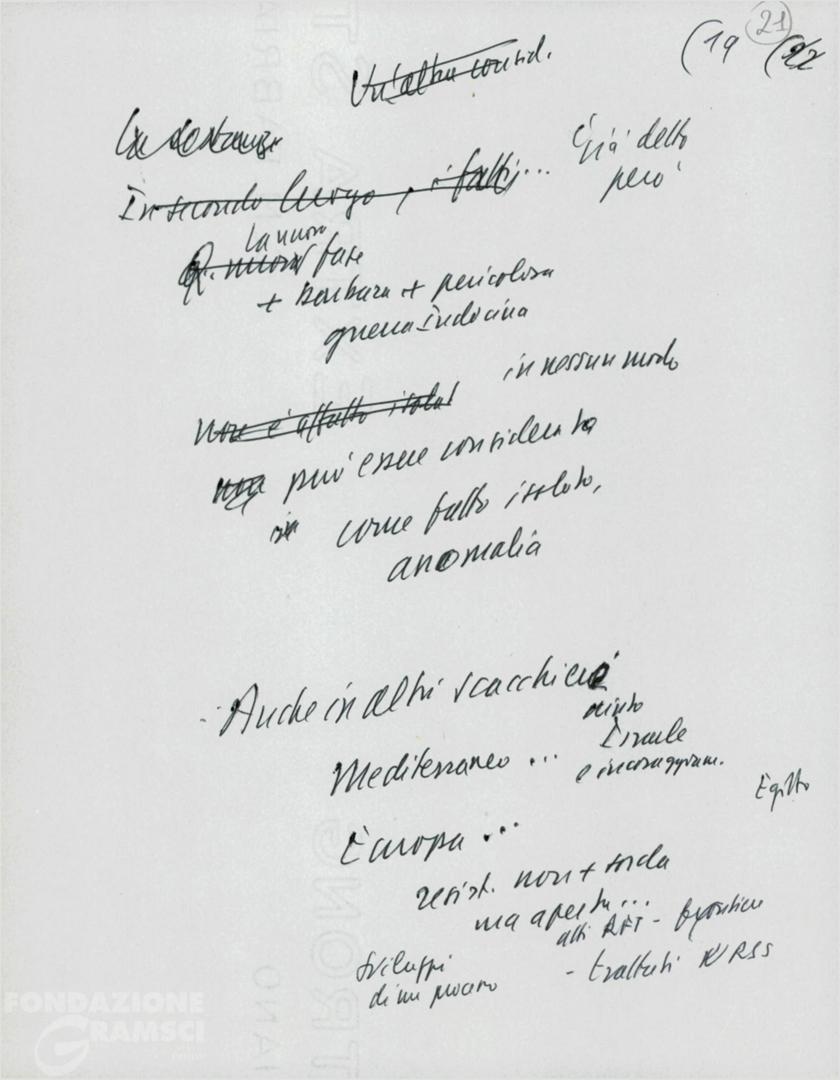 (19 21 (22
Un'altra consid.
In sostanza
In secondo luogo, i fatti... È già detto
però
la nuova
Q. nuova fase
+ barbara + pericolosa
guerra Indocina
in nessun modo
non è affatto isolat
non può essere considerata
come fatto isolato,
anomalia
- Anche in altri scacchieri
aiuto
Mediterraneo ... Israele
e incoraggiam.
Egitto
Europa ...
resist. non + sorda
ma aperta...
atti RFT - frontiere
sviluppi - trattati URSS
di un processo
FONDAZIONE
GRAMSCI